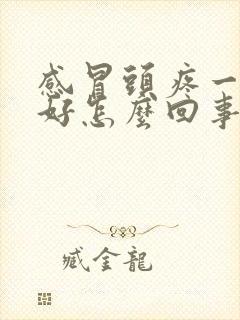 感冒頭疼一
好怎麼回事
臧金龍